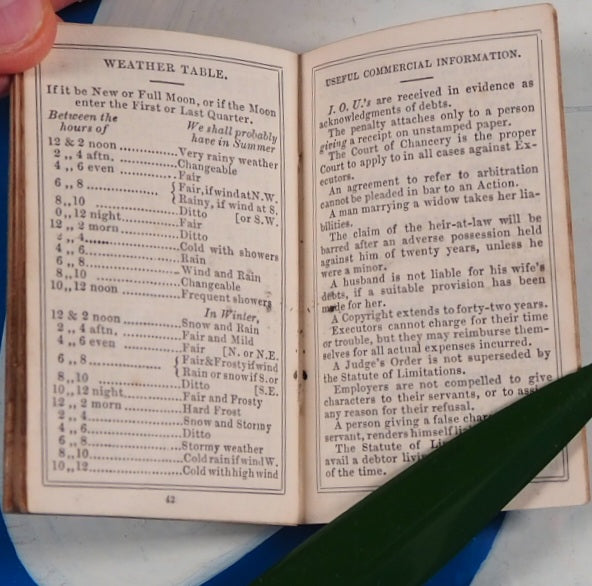 WEATHER TABLE.
If it be New or Full Moon, or if the Moon
enter the First or Last Quarter.
Between the We shall probably
hours of have in Summer
12 & 2 noon ............ Very rainy weather
2 ,, 4 aftn. ............ Changeable
4 ,, 6 even ............ Fair
6 ,, 8 ............ { Fair, if wind at N.W.
{ Rainy, if wind at S.
8 ,, 10 ............ Ditto [or S.W.
0 ,, 12 night ............ Fair
12 ,, 2 morn ............ Ditto
2 ,, 4 ............ Cold with showers
4 ,, 6 ............ Rain
6 ,, 8 ............ Wind and Rain
8 ,, 10 ............ Changeable
10 ,, 12 noon ............ Frequent showers
In Winter,
12 & 2 noon ............ Snow and Rain
2 ,, 4 aftn, ............ Fair and Mild
4 ,, 6 even ............ Fair [N. or N.E.
6 ,, 8 ............ { Fair & Frosty if wind
{ Rain or snow if S. or
8 ,, 10 ............ Ditto [S.E.
10 ,, 12 night ............ Fair and Frosty
12 ,, 2 morn ............ Hard Frost
2 ,, 4 ............ Snow and Stormy
4 ,, 6 ............ Ditto
6 ,, 8 ............ Stormy weather
8 ,, 10 ............ Cold rain if wind W.
10 ,, 12 ............ Cold with high wind
42
USEFUL COMMERCIAL INFORMATION.
I. O. U.'s are received in evidence as
acknowledgments of debts.
The penalty attaches only to a person
giving a receipt on unstamped paper.
The Court of Chancery is the proper
Court to apply to in all cases against Ex-
ecutors.
An agreement to refer to arbitration
cannot be pleaded in bar to an Action.
A man marrying a widow takes her lia-
bilities.
The claim of the heir-at-law will be
barred after an adverse possession held
against him of twenty years, unless he
were a minor.
A husband is not liable for his wife's
debts, if a suitable provision has been
made for her.
A Copyright extends to forty-two years.
Executors cannot charge for their time
or trouble, but they may reimburse them-
selves for all actual expenses incurred.
A Judge's Order is not superseded by
the Statute of Limitations.
Employers are not compelled to give
characters to their servants, or to
any reason for their refusal.
A person giving a false
servant, renders himself
The Statute of
avail a debtor
of the time.